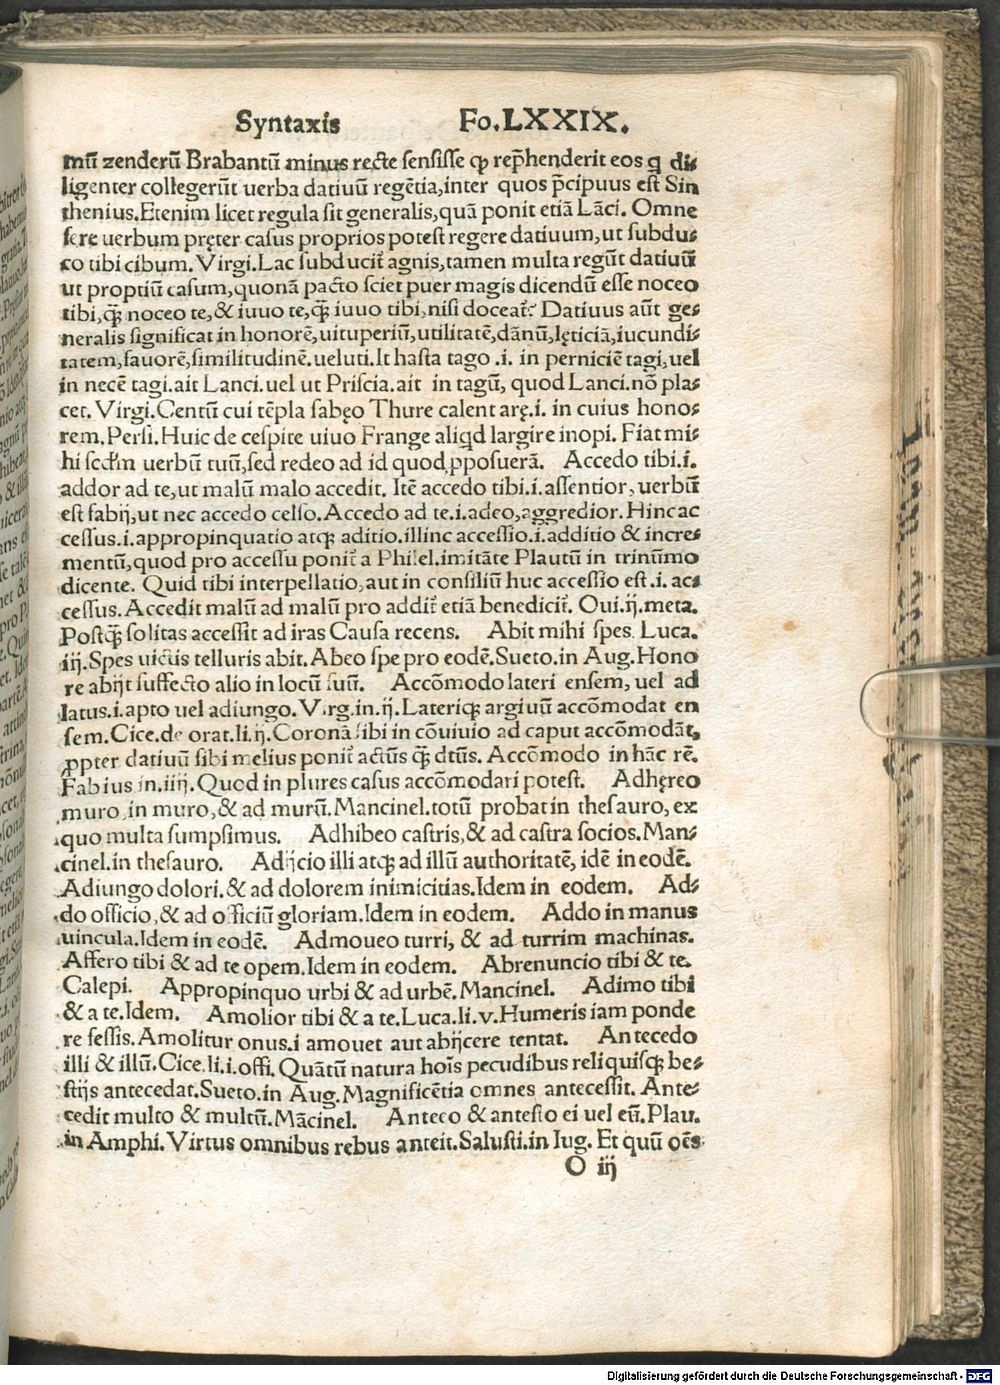 Syntaxis Fo.LXXIX.
mū zenderū Brabantū minus recte sensisse ꝙ rep̄henderit eos q di⸗
ligenter collegerūt uerba datiuū regētia,inter quos p̄cipuus est Sin
thenius.Etenim licet regula sit generalis,quā ponit etiā Lāci. Omne
fere uerbum pręter casus proprios potest regere datiuum,ut subdu⸗
co tibi cibum. Virgi.Lac subducit̄ agnis,tamen multa regūt datiuū
ut proptiū casum,quonā pacto sciet puer magis dicendū esse noceo
tibi,q̄ꝫ noceo te,& iuuo te,q̄ꝫ iuuo tibi,nisi doceat̄? Datiuus aūt ge⸗
neralis significat in honorē,uituperiū,utilitatē,dānū,lęticiā,iucundi⸗
tatem,fauorē,similitudinē.ueluti.It hasta tago .i. in perniciē tagi,uel
in necē tagi.ait Lanci.uel ut Priscia.ait in tagū, quod Lanci.nō pla⸗
cet. Virgi.Centū cui tēpla sabęo Thure calent arę.i. in cuius hono⸗
rem.Persi.Huic de cespite uiuo Frange aliqd largire inopi. Fiat mi⸗
hi scdm̄ uerbū tuū,sed redeo ad id quod ꝓposuerā. Accedo tibi.i.
addor ad te,ut malū malo accedit. Itē accedo tibi.i.assentior,uerbū
est fabij,ut nec accedo celso.Accedo ad te.i.adeo,aggredior.Hinc ac
cessus.i.appropinquatio atqꝫ aditio.illinc accessio.i.additio & incre⸗
mentū,quod pro accessu ponit̄ a Philel.imitāte Plautū in trinūmo
dicente. Quid tibi interpellatio,aut in consiliū huc accessio est.i. ac⸗
cessus.Accedit malū ad malū pro addit̄ etiā benedicit̄. Oui.ij.meta.
Postq̄ꝫ solitas accessit ad iras Causa recens. Abit mihi spes. Luca.
iij.Spes uictis telluris abit.Abeo spe pro eodē.Sueto.in Aug.Hono
re abijt suffecto alio in locū suū. Accōmodo lateri ensem, uel ad
latus.i.apto uel adiungo.Virg.in.ij.Lateriqꝫ argiuū accōmodat en
sem.Cice.de orat.li.ij.Coronā sibi in cōuiuio ad caput accōmodāt,
ꝓpter datiuū sibi melius ponit̄ actūs q̄ꝫ dtūs. Accōmodo in hāc rē.
Fabius in.iiij.Quod in plures casus accōmodari potest. Adhęreo
muro,in muro,& ad murū.Mancinel.totū probat in thesauro, ex
quo multa sumpsimus. Adhibeo castris,& ad castra socios.Man⸗
cinel.in thesauro. Adijcio illi atqꝫ ad illū authoritatē, idē in eodē.
Adiungo dolori.& ad dolorem inimicitias.Idem in eodem. Ad⸗
do officio,& ad officiū gloriam.Idem in eodem. Addo in manus
uincula.Idem in eodē. Admoueo turri, & ad turrim machinas.
Affero tibi & ad te opem.Idem in eodem. Abrenuncio tibi & te.
Calepi. Appropinquo urbi & ad urbē.Mancinel. Adimo tibi
& a te.Idem. Amolior tibi & a te.Luca.li.v.Humeris iam ponde
re fessis.Amolitur onus.i amouet aut abijcere tentat. Antecedo
illi & illū.Cice.li.i.offi. Quātū natura hoīs pecudibus reliquisqꝫ be⸗
stijs antecedat.Sueto.in Aug.Magnificētia omnes antecessit. Ante⸗
cedit multo & multū.Mācinel. Anteco & antesto ei uel eū.Plau.
in Amphi.Virtus omnibus rebus anteit.Salusti.in Iug. Et quū oēs
O iij
Digitalisierung gefördert durch die Deutsche Forschungsgemeinschaft - DFG